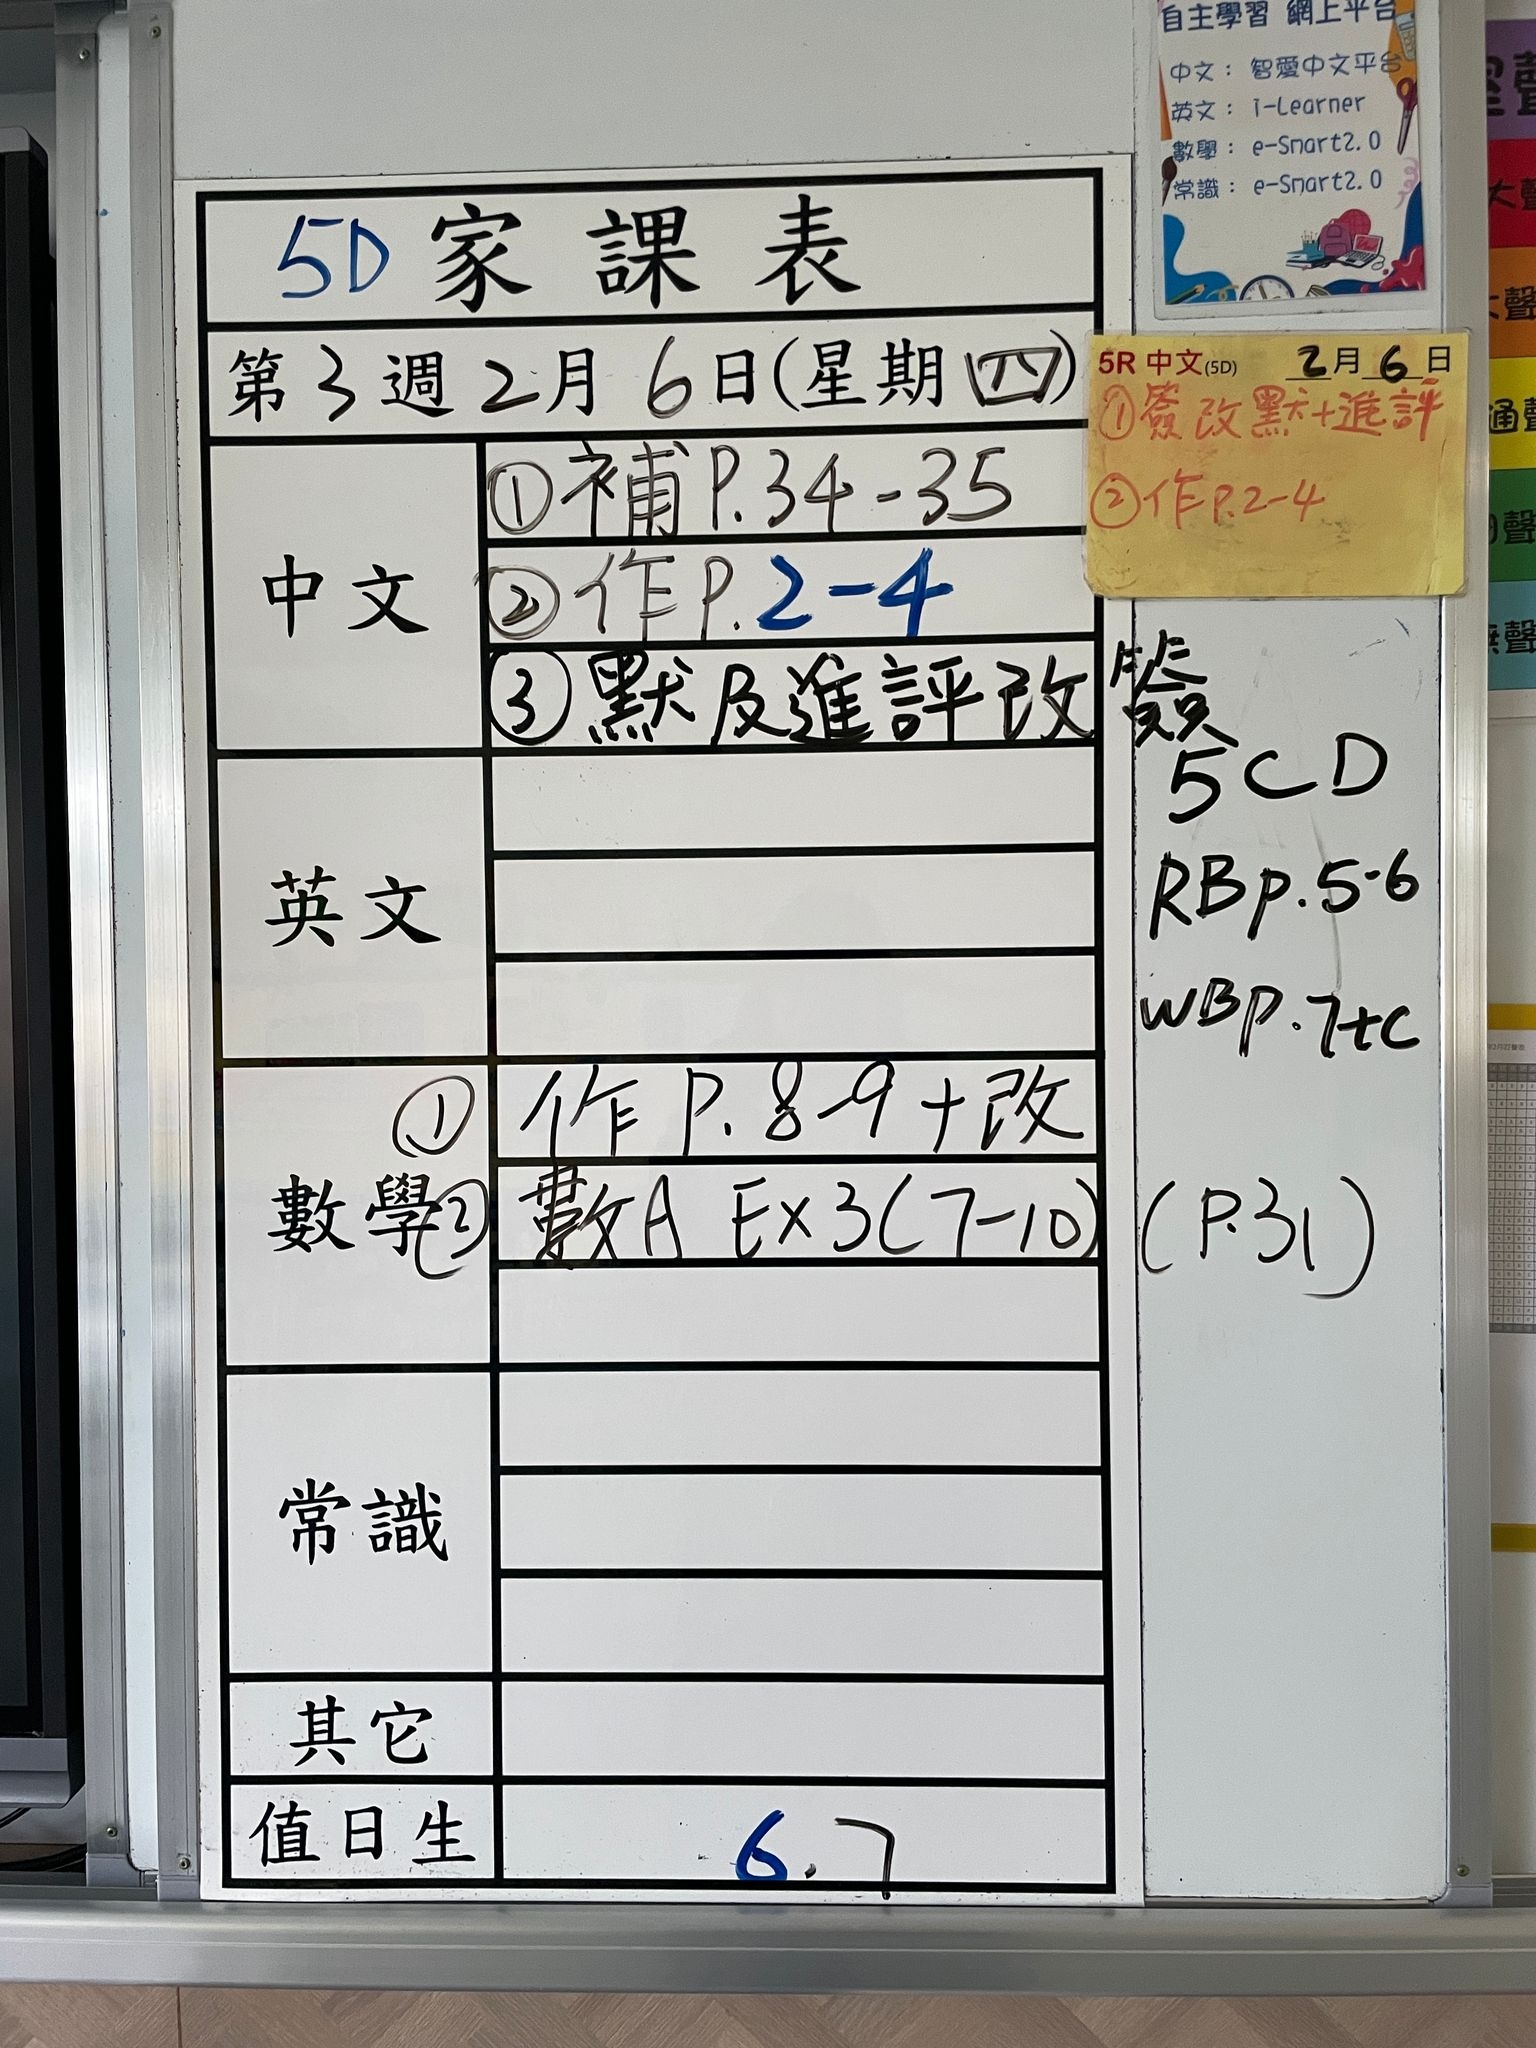 自主學習 網上平台
中文： 智愛中文平台
英文： i-Learner
數學： e-Smart2.0
常識： e-Smart2.0
5D 家課表
第3週2月6日(星期四)
5R 中文(5D) 2月6日
①簽改默+進評
②作P.2-4
中文
①補P.34-35
②作P.2-4
③默及進評改簽
英文
5CD
RBp.5-6
WBp.7+c
數學
① 作P.8-9+改
② 數A Ex3(7-10) (P.31)
常識
其它
值日生
6.7
大聲
聲
通聲
聲
無聲